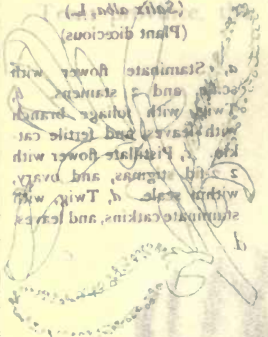 (Salix alba, L.)
(Plant diœcious)
a, Staminate flower with
scale and 2 stamens. b
Twig with foliage branch
with leaves and fertile cat-
kin. Pistillate flower with
2 2-fid stigmas, and ovary,
within scale. d, Twig, with
staminate catkins, and leaves.
d